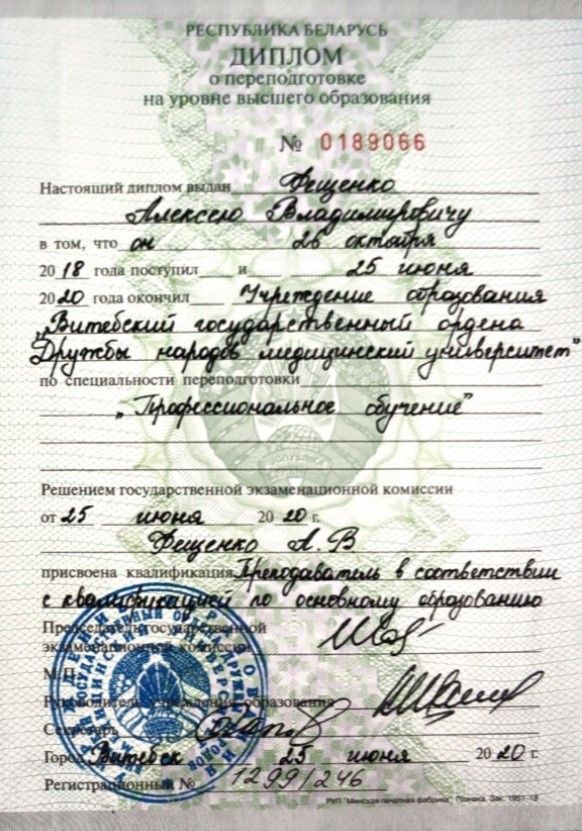 РЕСПУБЛИКА БЕЛАРУСЬ
ДИПЛОМ
о переподготовке
на уровне высшего образования
№ 0189066
Настоящий диплом выдан Фещенко
Алексею Владимировичу
в том, что он 26 октября
2018 года поступил и 25 июня
2020 года окончил Учреждение образования
„Витебский государственный ордена
Дружбы народов медицинский университет"
по специальности переподготовки
„Профессиональное обучение"
Решением государственной экзаменационной комиссии
от 25 июня 2020 г.
Фещенко А.В
присвоена квалификация Преподаватель в соответствии
с квалификацией по основному образованию
Председатель государственной
экзаменационной комиссии
М.П.
Руководитель учреждения образования
Секретарь
Город Витебск 25 июня 2020 г.
Регистрационный № 1299/246
РУП "Минская печатная фабрика" Гознака. Зак. 1951-18